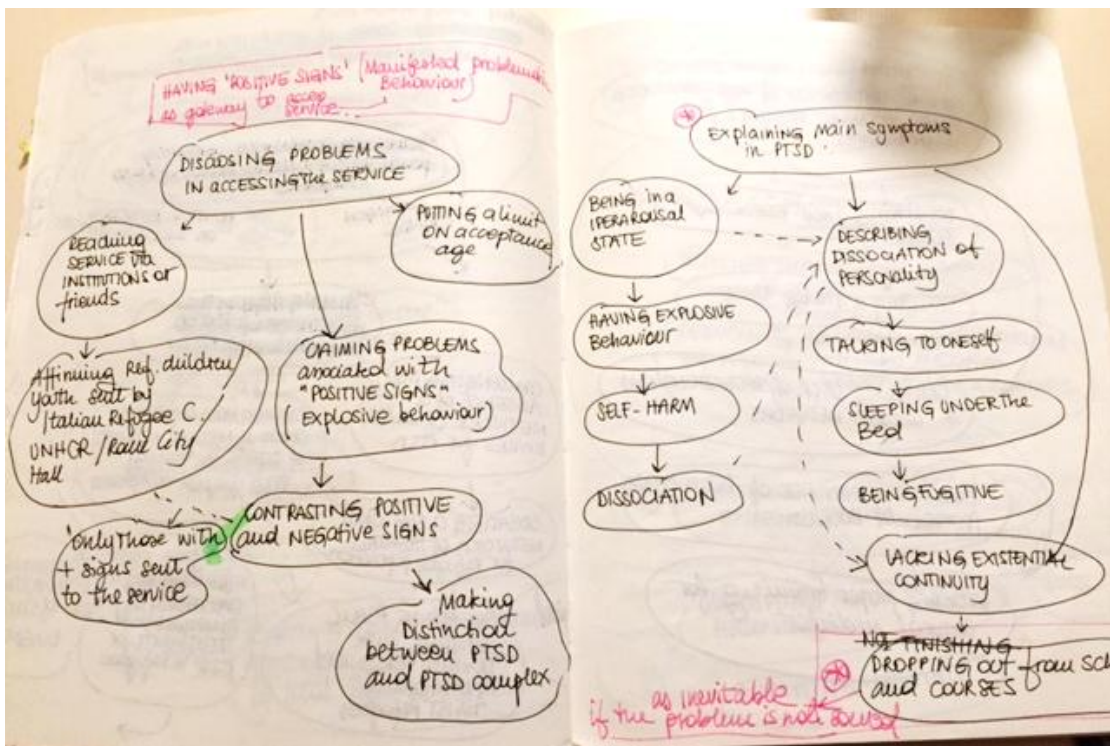 HAVING 'POSITIVE SIGNS' (Manifested
Behaviour)
as gateway to
service
DISCLOSING PROBLEMS
IN ACCESSING THE SERVICE
PUTTING a limit
ON acceptance
age
REACHING
SERVICE via
INSTITUTIONS or
friends
Affirming Ref. children
youth sent by
Italian Refugee C.
UNHCR / Rome City
Hall
CLAIMING PROBLEMS
associated with
"POSITIVE SIGNS"
(explosive behaviour)
CONTRASTING POSITIVE
and NEGATIVE SIGNS
'only those with
+ signs sent
to the service
Making
Distinction
between PTSD
and PTSD complex
Explaining Main symptoms
in PTSD.
BEING in a
IPERAROUSAL
STATE
HAVING EXPLOSIVE
Behaviour
SELF-HARM
DISSOCIATION
DESCRIBING
DISSOCIATION of
PERSONALITY
TALKING TO ONESELF
SLEEPING UNDER THE
Bed
BEING FUGITIVE
LACKING EXISTENTIAL
CONTINUITY
NOT FINISHING
DROPPING OUT from SCH
and COURSES
as inevitable
if the problem is not solved